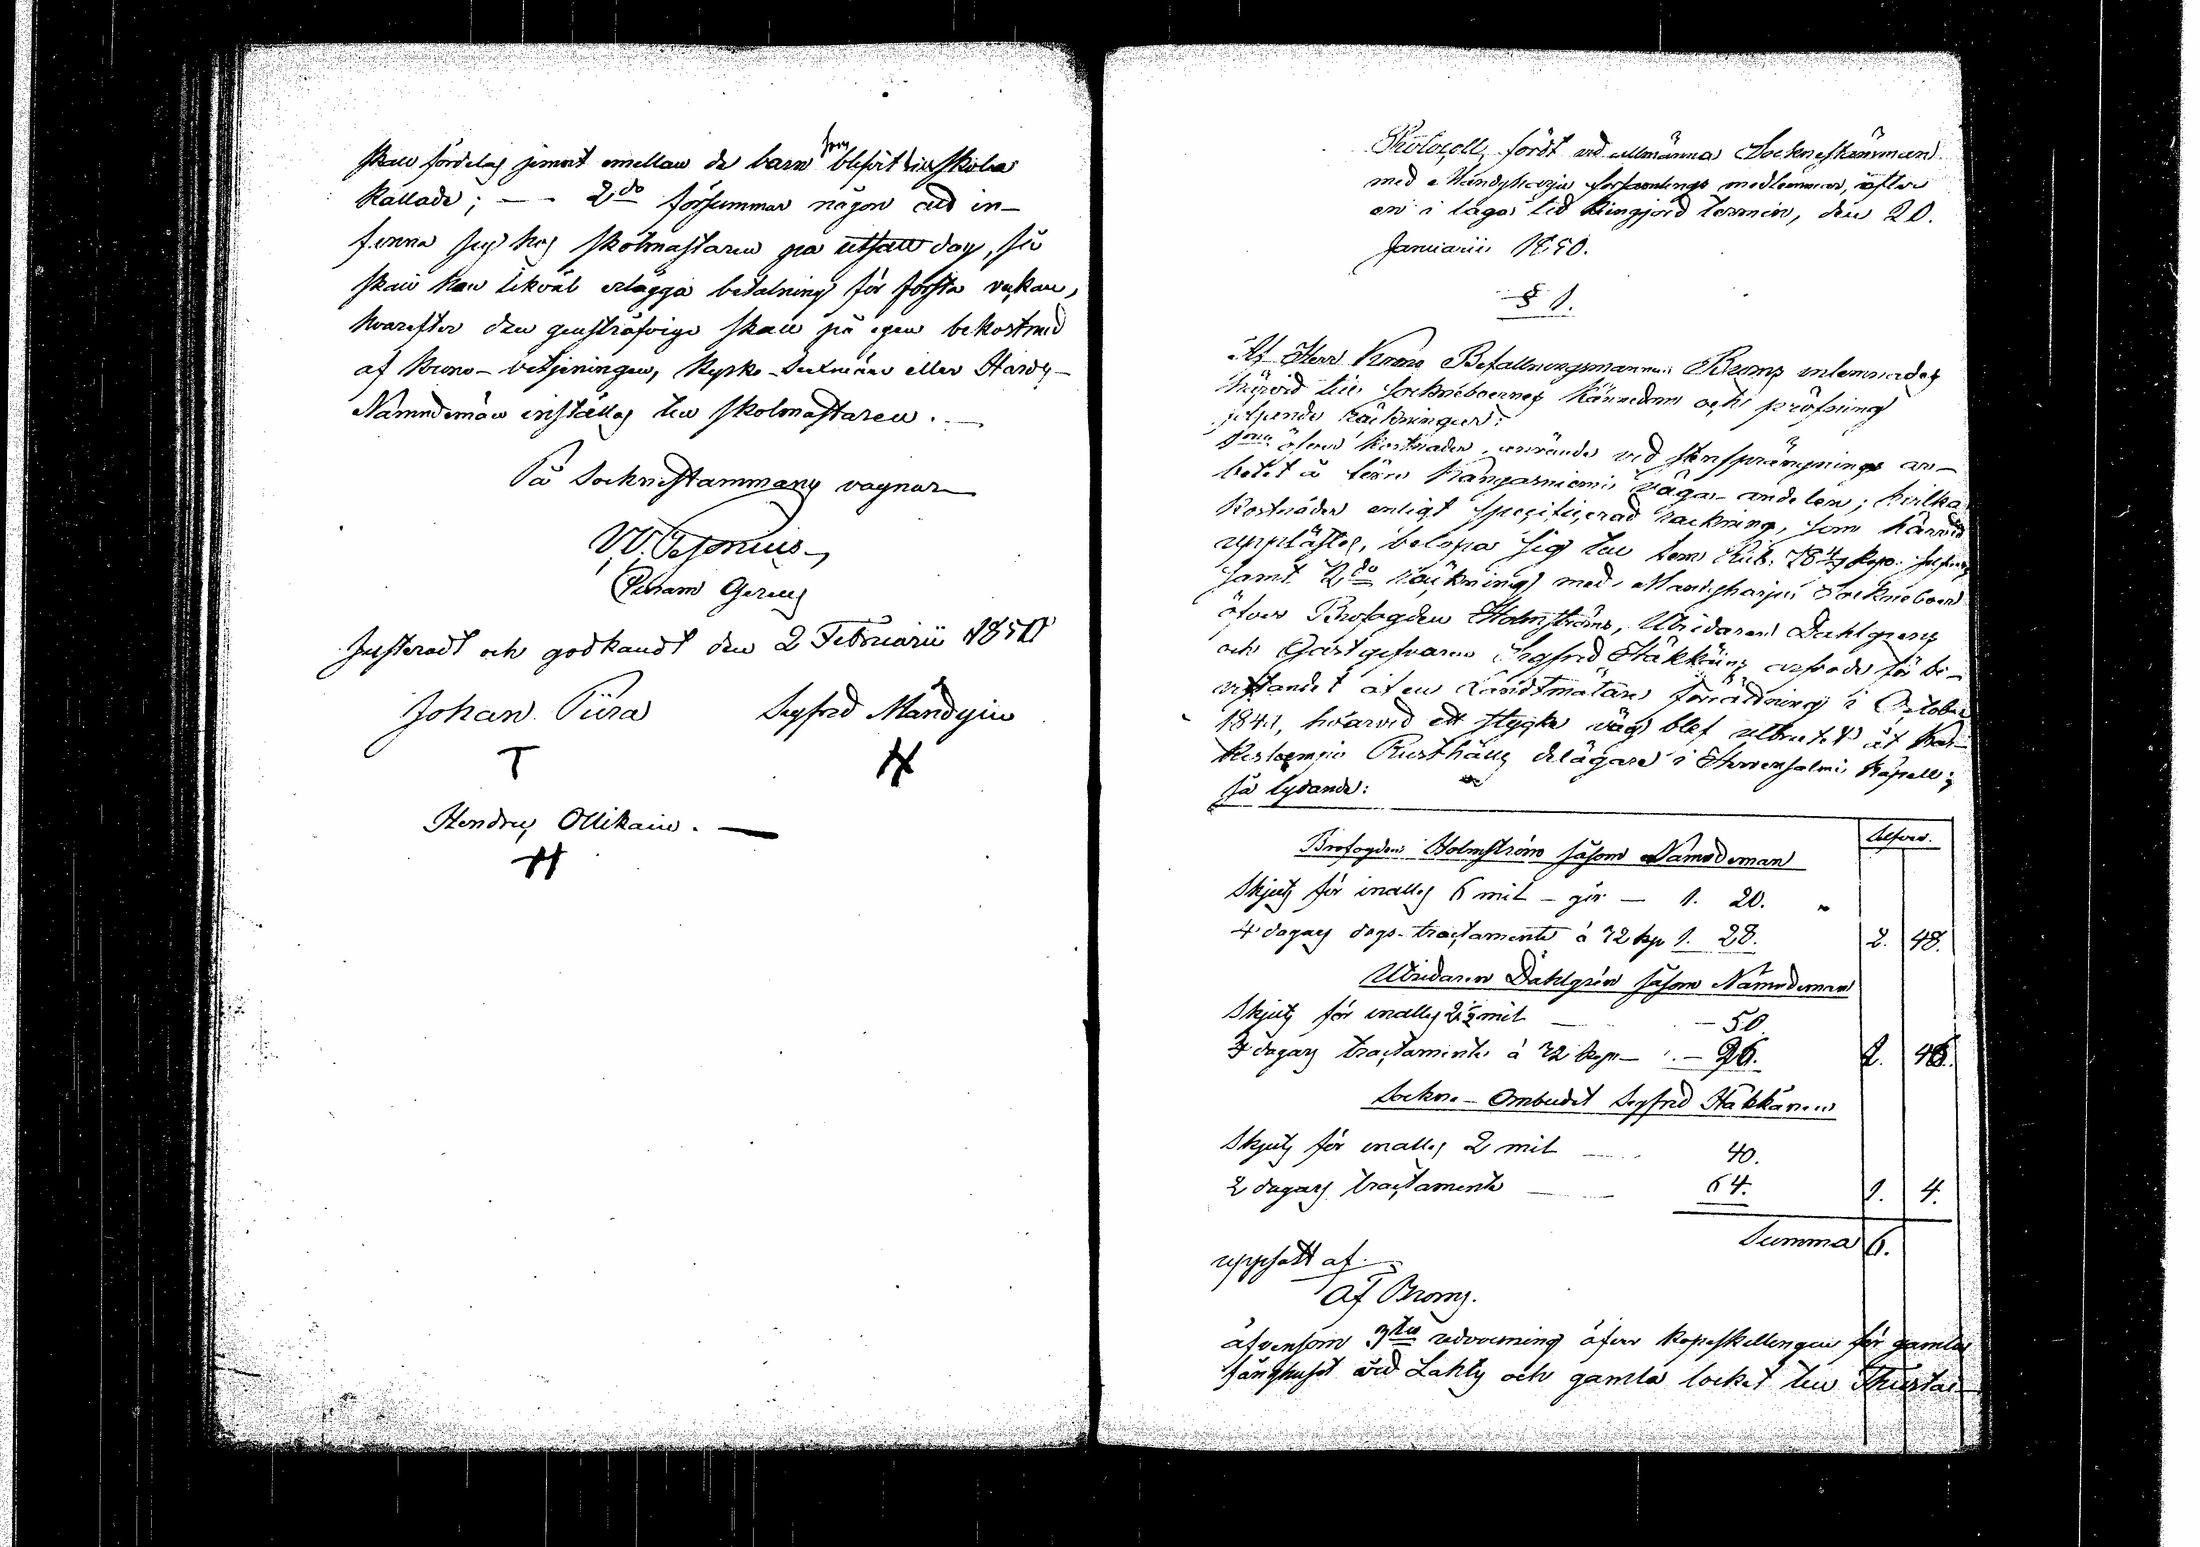 skall fördelas jemnt emellan de barn som blifvit till skola
kallade; — - 2do försummar någon att in-
finna sig hos skolmästaren på utsatt dag, så
skall han likväl erlägga betalning för första veckan,
hvarefter den gensträfvige skall på egen bekostnad
af krono-betjeningen, Kyrko-Sexmän eller Härads-
Nämndemän inställas till skolmästaren. —
På Sockne Stämmans vagnar
Johan Pûra
Justeradt och godkändt den 2 Februarii 1850
Johan Piira Sigfred Mändyin
Hendric Ollikain. —
Protocoll, fördt vid allmänna Sockne stämman
med Mändyharju församlings medlemmar, efter
en i laga tid kungjord termin, den 20.
Januarii 1850.
§ 1.
Af Herr Krono Befallningsmannen Broms inlemnades
härvid till sockneboernes kännedom och pröfning
följande räkningar:
1mo öfver kostnader, använde vid stensprängnings ar-
betet å förra Kangasniemi vägar andelen; hvilka
kostnader enligt specificerad räkning, som härvid
upplästes, belöpa sig till fem Rub. 78 4/7 kop. silfver;
samt 2do räkning med Mändyharju Sockneboer
öfver Brofogden Holmströms, Uhridaren Dahlgrens
och Gästgifvaren Sigfred Häkkäins arfvode för bi-
vistandet af en Landtmätare förrättning i October
1841, hvarvid ett stycke väg blef utbrutet åt
Rusthålls delägare i Hirvensalmi Kapell;
så lydande:
Silfver.
Brofogden Holmström såsom Nämndeman
Skjuts för inalles 6 mil - gör — 1. 20. "
4 dagars dags-tractamente á 32 kop 1. 28. 2. 48.
Uhridaren Dahlgrén såsom Nämndeman
Skjuts för inalles 2½ mil — — 50.
3 dagars tractamente á 32 kop — . — 96. 46.
Sockne-Ombudet Sigfred Häkkänen
Skjuts för inalles 2 mil — 40.
2 dagars tractamente — — 64. 1. 4.
Summa 6.
uppsatt af.
Af Broms.
äfvensom 3tio redovisning öfver köpeskillingen för gamla
fånghuset vid Lahty och gamla locket till